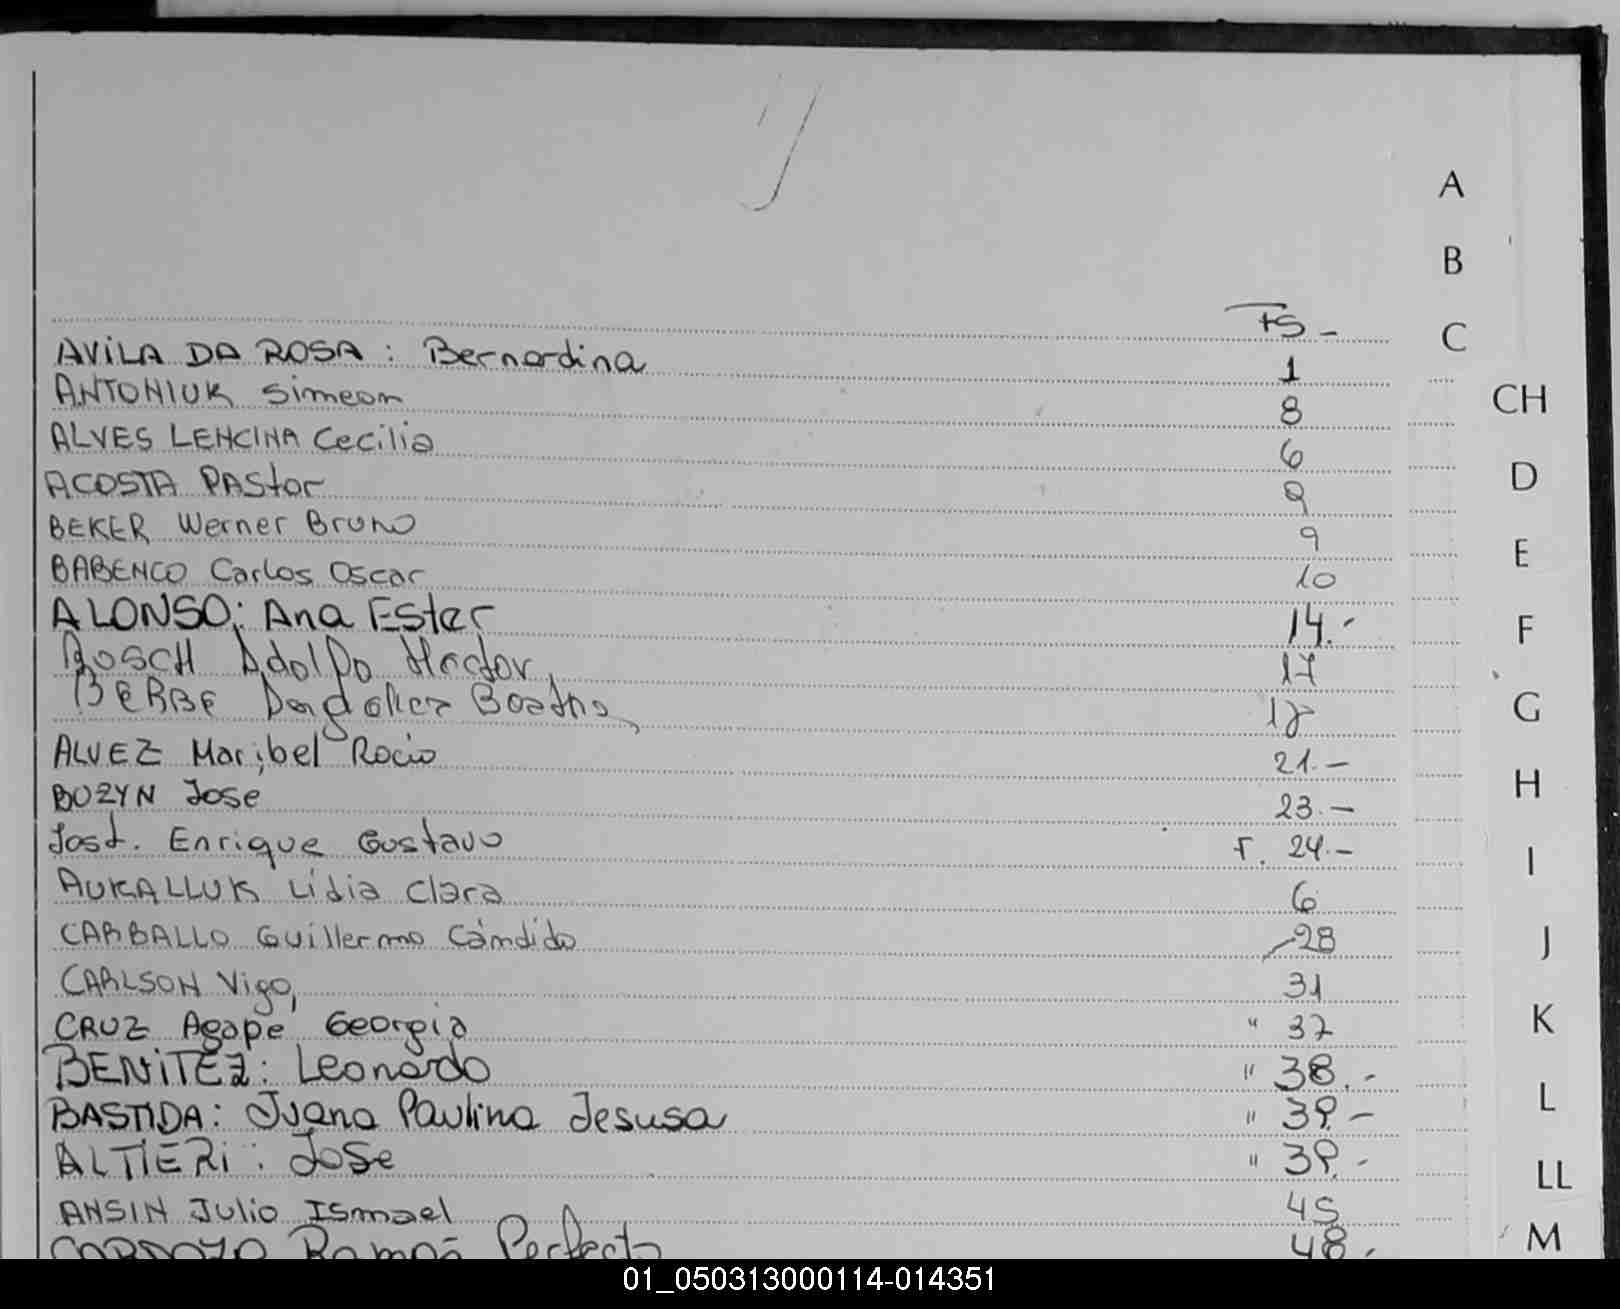 A
B
C
CH
D
E
F
G
H
I
J
K
L
LL
M
FS -
AVILA DA ROSA : Bernardina 1
ANTONIUK Simeon 8
ALVES LENCINA Cecilia 6
ACOSTA PAStor 9
BEKER Werner Bruno 9
BABENCO Carlos Oscar 10
ALONSO: Ana Ester 14.-
BOSCH Adolfo Hector, 17
BERBE 18
ALVEZ Maribel Rocio 21.-
BOZYN Jose 23.-
Jost. Enrique Gustavo F. 24.-
AUKALLUK Lidia Clara 6
CARBALLO Guillermo Cándido 28
CARLSON Vigo, 31
CRUZ Agape Georgia " 37
BENITEZ : Leonardo " 38.-
BASTIDA : Juana Paulina Jesusa " 39.-
ALTIERI : Jose " 39.-
ANSIN Julio Ismael 45
CARDOZO Ramón Perfecto 48.-
01_050313000114-014351